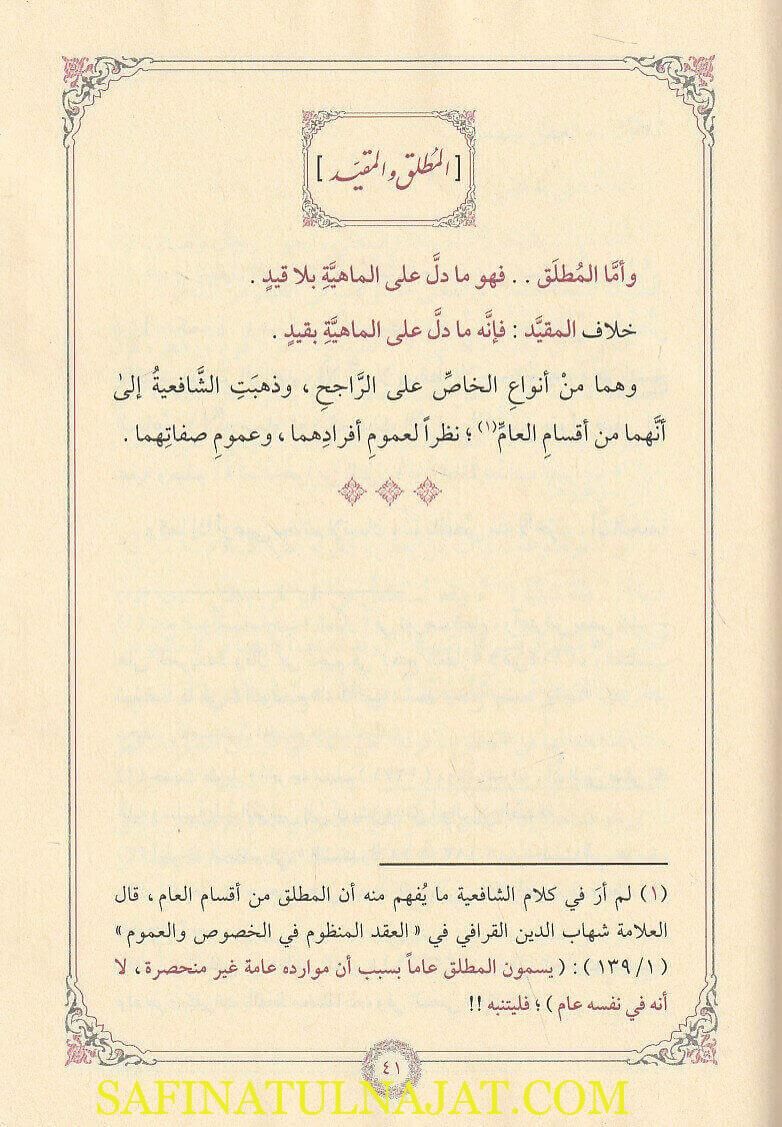 [المُطلق والمقيَّد]
وأمَّا المُطلَق . . فهو ما دلَّ على الماهيَّةِ بلا قيدٍ .
خلاف المقيَّد : فإنَّه ما دلَّ على الماهيَّةِ بقيدٍ .
وهما منْ أنواعِ الخاصِّ على الرَّاجحِ ، وذهبَتِ الشَّافعيةُ إلىٰ
أنَّهما من أقسامِ العامِّ(١) ؛ نظراً لعمومِ أفرادِهما ، وعمومِ صفاتِهما .
(١) لم أرَ في كلام الشافعية ما يُفهم منه أن المطلق من أقسام العام ، قال
العلامة شهاب الدين القرافي في « العقد المنظوم في الخصوص والعموم »
(١/ ١٣٩) : ( يسمون المطلق عاماً بسبب أن موارده عامة غير منحصرة ، لا
أنه في نفسه عام ) ؛ فليتنبه !!
٤١
SAFINATULNAJAT.COM